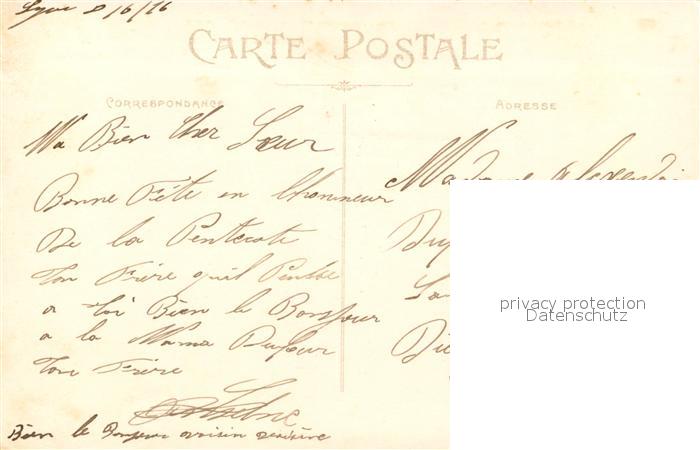 Lyon 8/6/16
CARTE POSTALE
CORRESPONDANCE
ADRESSE
Ma Bien Cher Sœur
Bonne Fête en l'honneur
De la Pentecote
Ton Frère qu'il Pense
a toi Bien le Bonjour
a la Mama Dufour
Ton Frère
Bien le Bonjour
Madame
privacy protection
Datenschutz